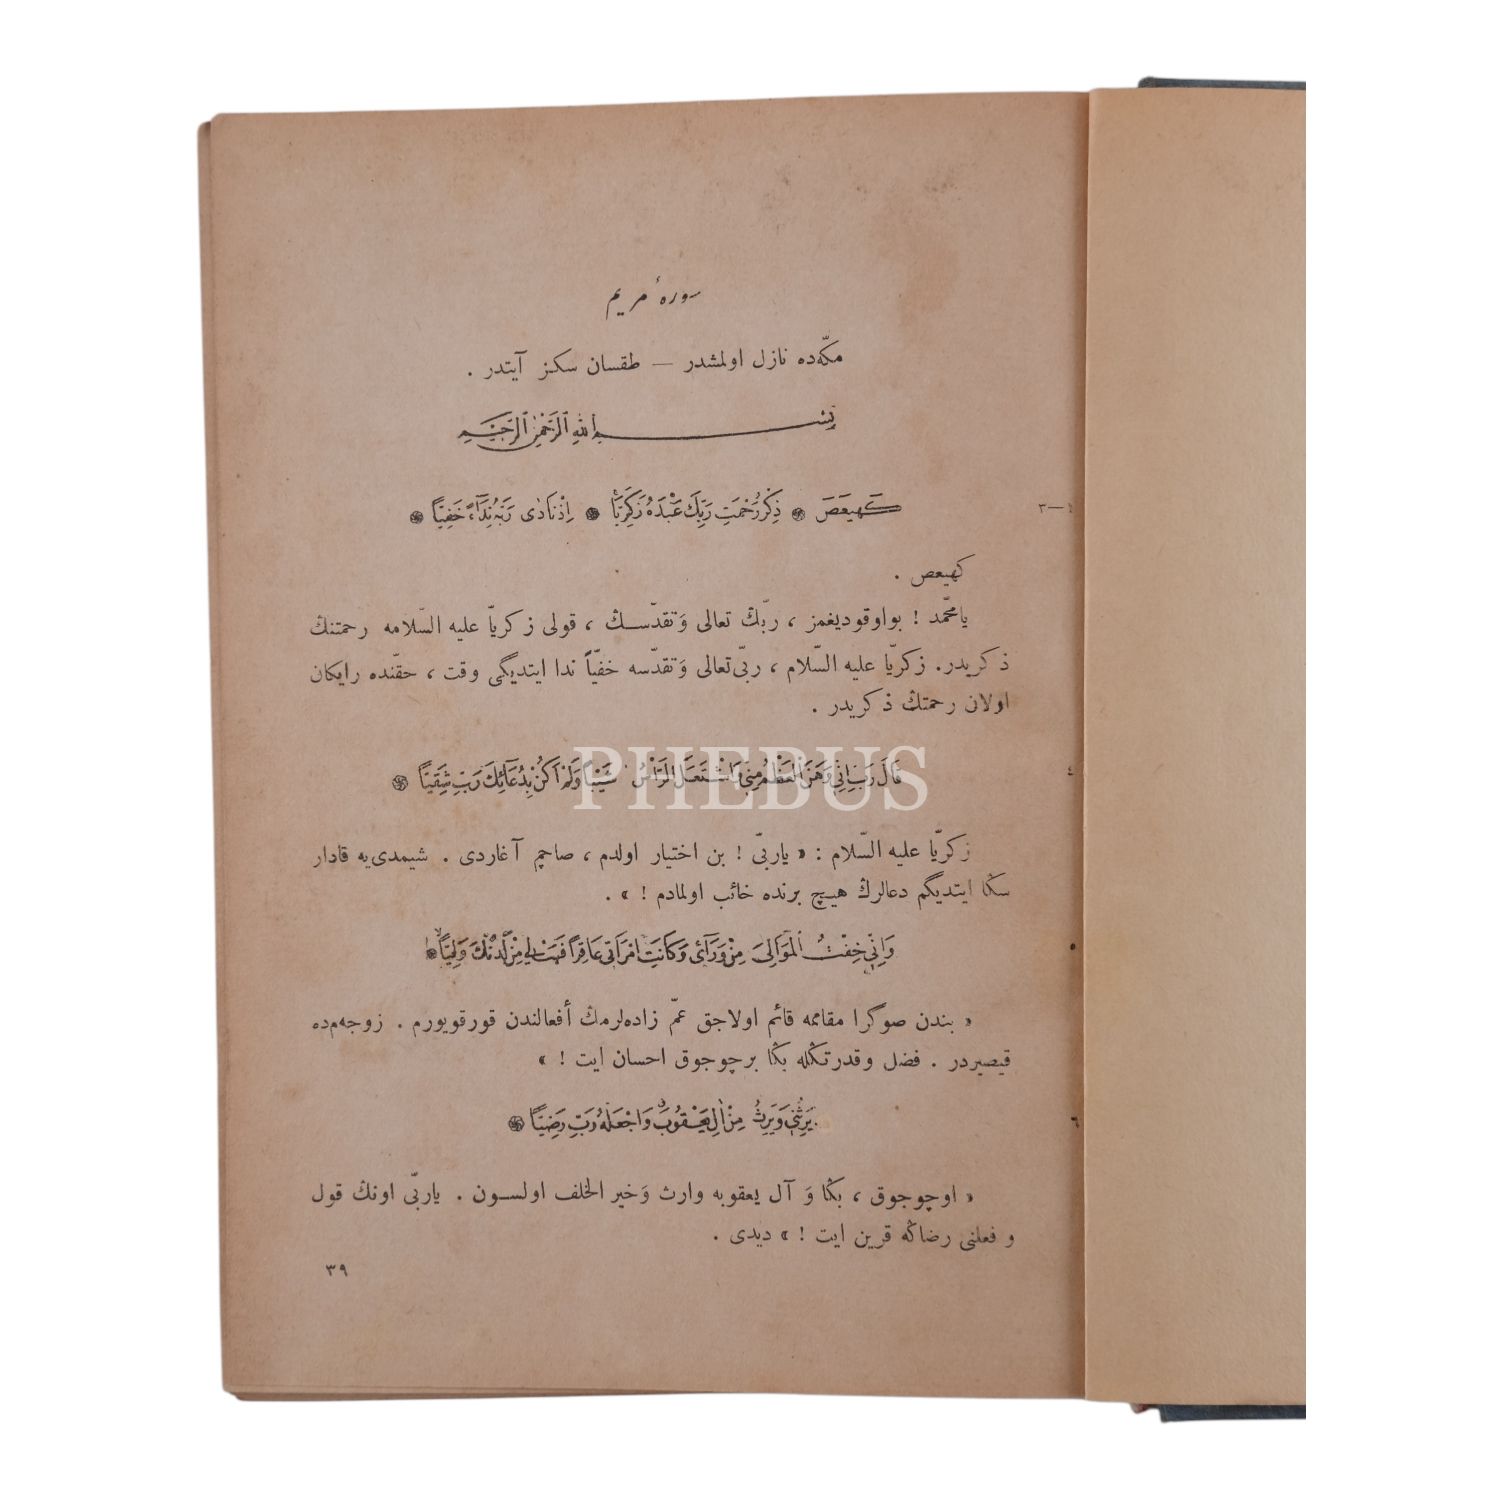 سورهٔ مریم
مكّه‌ده نازل اولمشدر — طقسان سكز آیتدر .
بِسْمِ اللهِ الرَّحْمٰنِ الرَّحِيمِ
كٓهيعٓصٓ ❁ ذِكْرُ رَحْمَتِ رَبِّكَ عَبْدَهُ زَكَرِيَّا ❁ اِذْ نَادٰى رَبَّهُ نِدَٓاءً خَفِيًّا ❁
١—٣
كهیعص .
یامحمّد ! بواوقودیغمز ، ربّڭ تعالى وَتقدّسـڭ ، قولى زكریّا علیه السّلامه رحمتنڭ
ذكریدر. زكریّا علیه السّلام ، ربّى تعالى وَتقدّسه خفیّاً ندا ایتدیگى وقت ، حقّنده رایكان
اولان رحمتڭ ذكریدر .
PHEBUS
قَالَ رَبِّ اِنّ۪ى وَهَنَ الْعَظْمُ مِنّ۪ى وَاشْتَعَلَ الرَّاْسُ شَيْبًا وَلَمْ اَكُنْ بِدُعَٓائِكَ رَبِّ شَقِيًّا ❁
٤
زكریّا علیه السّلام : « یاربّى ! بن اختیار اولدم ، صاچم آغاردى . شیمدى‌یه قادار
سڭا ایتدیگم دعالرڭ هیـچ برنده خائب اولمادم ! » .
وَاِنّ۪ى خِفْتُ الْمَوَالِىَ مِنْ وَرَٓائ۪ى وَكَانَتِ امْرَاَت۪ى عَاقِرًا فَهَبْ ل۪ى مِنْ لَدُنْكَ وَلِيًّا ❁
٥
« بندن صوگرا مقاممه قائم اولاجق عمّ زاده‌لرمڭ أفعالندن قورقویورم . زوجه‌م‌ده
قیصیردر . فضل وقدرتڭله بڭا برچوجوق احسان ایت ! »
يَرِثُن۪ى وَيَرِثُ مِنْ اٰلِ يَعْقُوبَ وَاجْعَلْهُ رَبِّ رَضِيًّا ❁
٦
« اوچوجوق ، بڭا وَ آل یعقوبه وارث وَخیر الخلف اولسـون . یاربّى اونڭ قول
و فعلنى رضاڭه قرین ایت ! » دیدى .
٣٩